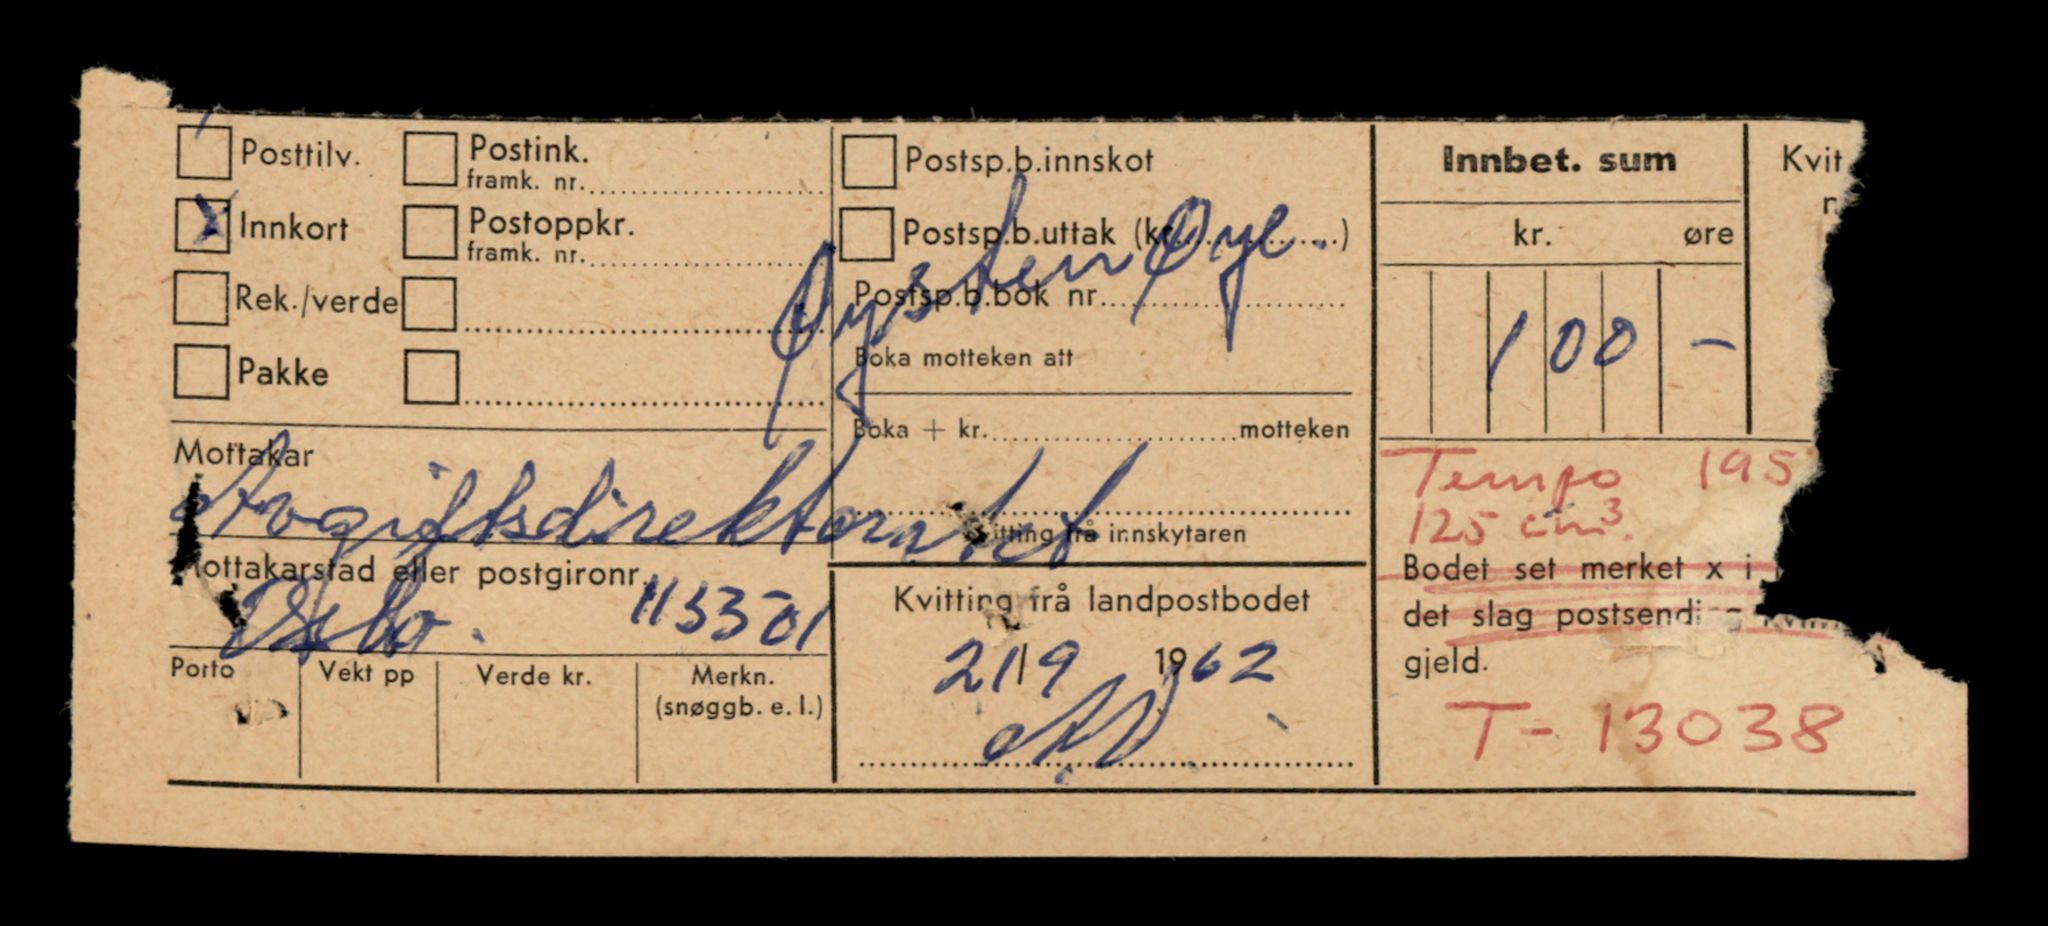 Posttilv.
Postink.
framk. nr.
x Innkort
Postoppkr.
framk. nr.
Rek./verde
Pakke
Mottakar
Avgiftsdirektoratet
Mottakarstad eller postgironr.
Oslo. 113301
Porto
Vekt pp
Verde kr.
Merkn.
(snøggb. e. l.)
Postsp.b.innskot
Postsp.b.uttak (kr..............)
Øysten Øye.
Postsp.b.bok nr.
Boka motteken att
Boka + kr. motteken
Kvitting frå innskytaren
Kvitting frå landpostbodet
21/9 1962
Innbet. sum
kr. øre
100 -
Kvit
n
Tempo 195
125 cm³.
Bodet set merket x i
det slag postsending
gjeld.
T- 13038